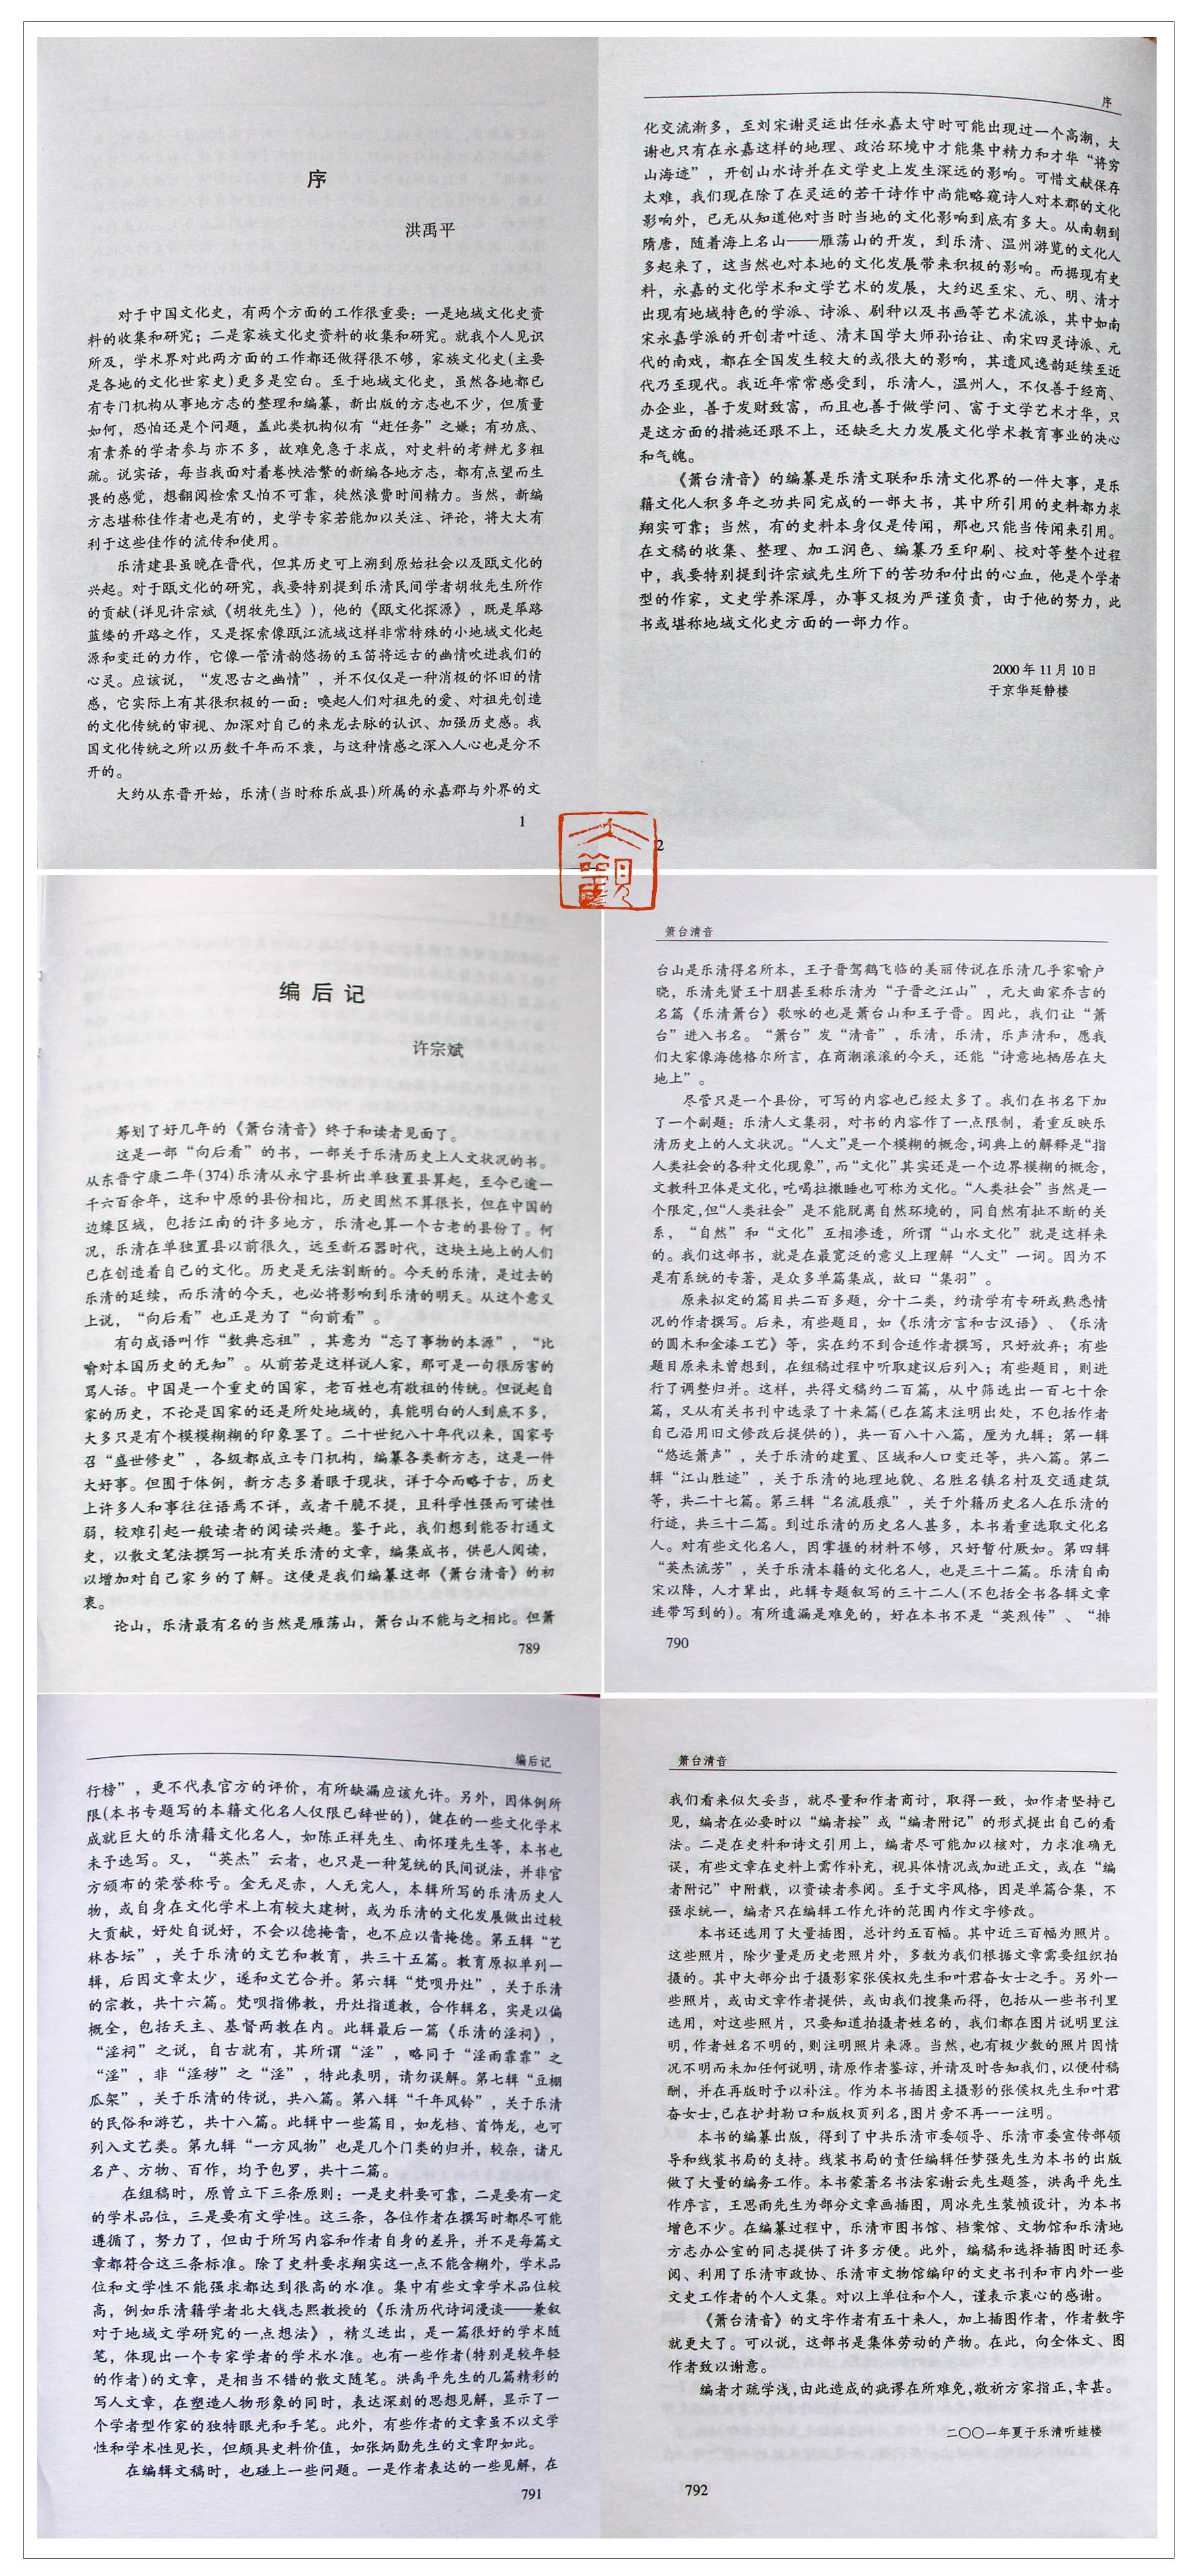 序
洪禹平
对于中国文化史，有两个方面的工作很重要：一是地域文化史资
料的收集和研究；二是家族文化史资料的收集和研究。就我个人见识
所及，学术界对此两方面的工作都还做得很不够，家族文化史(主要
是各地的文化世家史)更多是空白。至于地域文化史，虽然各地都已
有专门机构从事地方志的整理和编纂，新出版的方志也不少，但质量
如何，恐怕还是个问题，盖此类机构似有“赶任务”之嫌；有功底、
有素养的学者参与亦不多，故难免急于求成，对史料的考辨尤多粗
疏。说实话，每当我面对着卷帙浩繁的新编各地方志，都有点望而生
畏的感觉，想翻阅检索又怕不可靠，徒然浪费时间精力。当然，新编
方志堪称佳作者也是有的，史学专家若能加以关注、评论，将大大有
利于这些佳作的流传和使用。
乐清建县虽晚在晋代，但其历史可上溯到原始社会以及瓯文化的
兴起。对于瓯文化的研究，我要特别提到乐清民间学者胡牧先生所作
的贡献(详见许宗斌《胡牧先生》)，他的《瓯文化探源》，既是筚路
蓝缕的开路之作，又是探索像瓯江流域这样非常特殊的小地域文化起
源和变迁的力作，它像一管清韵悠扬的玉笛将远古的幽情吹进我们的
心灵。应该说，“发思古之幽情”，并不仅仅是一种消极的怀旧的情
感，它实际上有其很积极的一面：唤起人们对祖先的爱、对祖先创造
的文化传统的审视、加深对自己的来龙去脉的认识、加强历史感。我
国文化传统之所以历数千年而不衰，与这种情感之深入人心也是分不
开的。
大约从东晋开始，乐清(当时称乐成县)所属的永嘉郡与外界的文
1
序
化交流渐多，至刘宋谢灵运出任永嘉太守时可能出现过一个高潮，大
谢也只有在永嘉这样的地理、政治环境中才能集中精力和才华“将穷
山海迹”，开创山水诗并在文学史上发生深远的影响。可惜文献保存
太难，我们现在除了在灵运的若干诗作中尚能略窥诗人对本郡的文化
影响外，已无从知道他对当时当地的文化影响到底有多大。从南朝到
隋唐，随着海上名山——雁荡山的开发，到乐清、温州游览的文化人
多起来了，这当然也对本地的文化发展带来积极的影响。而据现有史
料，永嘉的文化学术和文学艺术的发展，大约迟至宋、元、明、清才
出现有地域特色的学派、诗派、剧种以及书画等艺术流派，其中如南
宋永嘉学派的开创者叶适、清末国学大师孙诒让、南宋四灵诗派、元
代的南戏，都在全国发生较大的或很大的影响，其遗风逸韵延续至近
代乃至现代。我近年常常感受到，乐清人，温州人，不仅善于经商、
办企业，善于发财致富，而且也善于做学问、富于文学艺术才华，只
是这方面的措施还跟不上，还缺乏大力发展文化学术教育事业的决心
和气魄。
《箫台清音》的编纂是乐清文联和乐清文化界的一件大事，是乐
籍文化人积多年之功共同完成的一部大书，其中所引用的史料都力求
翔实可靠；当然，有的史料本身仅是传闻，那也只能当传闻来引用。
在文稿的收集、整理、加工润色、编纂乃至印刷、校对等整个过程
中，我要特别提到许宗斌先生所下的苦功和付出的心血，他是个学者
型的作家，文史学养深厚，办事又极为严谨负责，由于他的努力，此
书或堪称地域文化史方面的一部力作。
2000年11月10日
于京华延静楼
2
大觀
编后记
许宗斌
筹划了好几年的《箫台清音》终于和读者见面了。
这是一部“向后看”的书，一部关于乐清历史上人文状况的书。
从东晋宁康二年(374)乐清从永宁县析出单独置县算起，至今已逾一
千六百余年，这和中原的县份相比，历史固然不算很长，但在中国的
边缘区域，包括江南的许多地方，乐清也算一个古老的县份了。何
况，乐清在单独置县以前很久，远至新石器时代，这块土地上的人们
已在创造着自己的文化。历史是无法割断的。今天的乐清，是过去的
乐清的延续，而乐清的今天，也必将影响到乐清的明天。从这个意义
上说，“向后看”也正是为了“向前看”。
有句成语叫作“数典忘祖”，其意为“忘了事物的本源”，“比
喻对本国历史的无知”。从前若是这样说人家，那可是一句很厉害的
骂人话。中国是一个重史的国家，老百姓也有敬祖的传统。但说起自
家的历史，不论是国家的还是所处地域的，真能明白的人到底不多，
大多只是有个模模糊糊的印象罢了。二十世纪八十年代以来，国家号
召“盛世修史”，各级都成立专门机构，编纂各类新方志，这是一件
大好事。但囿于体例，新方志多着眼于现状，详于今而略于古，历史
上许多人和事往往语焉不详，或者干脆不提，且科学性强而可读性
弱，较难引起一般读者的阅读兴趣。鉴于此，我们想到能否打通文
史，以散文笔法撰写一批有关乐清的文章，编集成书，供邑人阅读，
以增加对自己家乡的了解。这便是我们编纂这部《箫台清音》的初
衷。
论山，乐清最有名的当然是雁荡山，箫台山不能与之相比。但箫
789
箫台清音
台山是乐清得名所本，王子晋驾鹤飞临的美丽传说在乐清几乎家喻户
晓，乐清先贤王十朋甚至称乐清为“子晋之江山”，元大曲家乔吉的
名篇《乐清箫台》歌咏的也是箫台山和王子晋。因此，我们让“箫
台”进入书名。“箫台”发“清音”，乐清，乐清，乐声清和，愿我
们大家像海德格尔所言，在商潮滚滚的今天，还能“诗意地栖居在大
地上”。
尽管只是一个县份，可写的内容也已经太多了。我们在书名下加
了一个副题：乐清人文集羽，对书的内容作了一点限制，着重反映乐
清历史上的人文状况。“人文”是一个模糊的概念，词典上的解释是“指
人类社会的各种文化现象”，而“文化”其实还是一个边界模糊的概念，
文教科卫体是文化，吃喝拉撒睡也可称为文化。“人类社会”当然是一
个限定，但“人类社会”是不能脱离自然环境的，同自然有扯不断的关
系，“自然”和“文化”互相渗透，所谓“山水文化”就是这样来
的。我们这部书，就是在最宽泛的意义上理解“人文”一词。因为不
是有系统的专著，是众多单篇集成，故曰“集羽”。
原来拟定的篇目共二百多题，分十二类，约请学有专研或熟悉情
况的作者撰写。后来，有些题目，如《乐清方言和古汉语》、《乐清
的圆木和金漆工艺》等，实在约不到合适作者撰写，只好放弃；有些
题目原来未曾想到，在组稿过程中听取建议后列入；有些题目，则进
行了调整归并。这样，共得文稿约二百篇，从中筛选出一百七十余
篇，又从有关书刊中选录了十来篇(已在篇末注明出处，不包括作者
自己沿用旧文修改后提供的)，共一百八十八篇，厘为九辑：第一辑
“悠远箫声”，关于乐清的建置、区域和人口变迁等，共八篇。第二
辑“江山胜迹”，关于乐清的地理地貌、名胜名镇名村及交通建筑
等，共二十七篇。第三辑“名流屐痕”，关于外籍历史名人在乐清的
行迹，共三十二篇。到过乐清的历史名人甚多，本书着重选取文化名
人。对有些文化名人，因掌握的材料不够，只好暂付厥如。第四辑
“英杰流芳”，关于乐清本籍的文化名人，也是三十二篇。乐清自南
宋以降，人才辈出，此辑专题叙写的三十二人(不包括全书各辑文章
连带写到的)。有所遗漏是难免的，好在本书不是“英烈传”、“排
790
编后记
行榜”，更不代表官方的评价，有所缺漏应该允许。另外，因体例所
限(本书专题写的本籍文化名人仅限已辞世的)，健在的一些文化学术
成就巨大的乐清籍文化名人，如陈正祥先生、南怀瑾先生等，本书也
未予选写。又，“英杰”云者，也只是一种笼统的民间说法，并非官
方颁布的荣誉称号。金无足赤，人无完人，本辑所写的乐清历史人
物，或自身在文化学术上有较大建树，或为乐清的文化发展做出过较
大贡献，好处自说好，不会以德掩眚，也不应以眚掩德。第五辑“艺
林杏坛”，关于乐清的文艺和教育，共三十五篇。教育原拟单列一
辑，后因文章太少，遂和文艺合并。第六辑“梵呗丹灶”，关于乐清
的宗教，共十六篇。梵呗指佛教，丹灶指道教，合作辑名，实是以偏
概全，包括天主、基督两教在内。此辑最后一篇《乐清的淫祠》，
“淫祠”之说，自古就有，其所谓“淫”，略同于“淫雨霏霏”之
“淫”，非“淫秽”之“淫”，特此表明，请勿误解。第七辑“豆棚
瓜架”，关于乐清的传说，共八篇。第八辑“千年风铃”，关于乐清
的民俗和游艺，共十八篇。此辑中一些篇目，如龙档、首饰龙，也可
列入文艺类。第九辑“一方风物”也是几个门类的归并，较杂，诸凡
名产、方物、百作，均予包罗，共十二篇。
在组稿时，原曾立下三条原则：一是史料要可靠，二是要有一定
的学术品位，三是要有文学性。这三条，各位作者在撰写时都尽可能
遵循了，努力了，但由于所写内容和作者自身的差异，并不是每篇文
章都符合这三条标准。除了史料要求翔实这一点不能含糊外，学术品
位和文学性不能强求都达到很高的水准。集中有些文章学术品位较
高，例如乐清籍学者北大钱志熙教授的《乐清历代诗词漫谈——兼叙
对于地域文学研究的一点想法》，精义迭出，是一篇很好的学术随
笔，体现出一个专家学者的学术水准。也有一些作者(特别是较年轻
的作者)的文章，是相当不错的散文随笔。洪禹平先生的几篇精彩的
写人文章，在塑造人物形象的同时，表达深刻的思想见解，显示了一
个学者型作家的独特眼光和手笔。此外，有些作者的文章虽不以文学
性和学术性见长，但颇具史料价值，如张炳勋先生的文章即如此。
在编辑文稿时，也碰上一些问题。一是作者表达的一些见解，在
791
箫台清音
我们看来似欠妥当，就尽量和作者商讨，取得一致，如作者坚持己
见，编者在必要时以“编者按”或“编者附记”的形式提出自己的看
法。二是在史料和诗文引用上，编者尽可能加以核对，力求准确无
误，有些文章在史料上需作补充，视具体情况或加进正文，或在“编
者附记”中附载，以资读者参阅。至于文字风格，因是单篇合集，不
强求统一，编者只在编辑工作允许的范围内作文字修改。
本书还选用了大量插图，总计约五百幅。其中近三百幅为照片。
这些照片，除少量是历史老照片外，多数为我们根据文章需要组织拍
摄的。其中大部分出于摄影家张侯权先生和叶君奋女士之手。另外一
些照片，或由文章作者提供，或由我们搜集而得，包括从一些书刊里
选用，对这些照片，只要知道拍摄者姓名的，我们都在图片说明里注
明，作者姓名不明的，则注明照片来源。当然，也有极少数的照片因情
况不明而未加任何说明，请原作者鉴谅，并请及时告知我们，以便付稿
酬，并在再版时予以补注。作为本书插图主摄影的张侯权先生和叶君
奋女士，已在护封勒口和版权页列名，图片旁不再一一注明。
本书的编纂出版，得到了中共乐清市委领导、乐清市委宣传部领
导和线装书局的支持。线装书局的责任编辑任梦强先生为本书的出版
做了大量的编务工作。本书蒙著名书法家谢云先生题签，洪禹平先生
作序言，王思雨先生为部分文章画插图，周冰先生装帧设计，为本书
增色不少。在编纂过程中，乐清市图书馆、档案馆、文物馆和乐清地
方志办公室的同志提供了许多方便。此外，编稿和选择插图时还参
阅、利用了乐清市政协、乐清市文物馆编印的文史书刊和市内外一些
文史工作者的个人文集。对以上单位和个人，谨表示衷心的感谢。
《箫台清音》的文字作者有五十来人，加上插图作者，作者数字
就更大了。可以说，这部书是集体劳动的产物。在此，向全体文、图
作者致以谢意。
编者才疏学浅，由此造成的疵谬在所难免，敬祈方家指正，幸甚。
二〇〇一年夏于乐清听蛙楼
792